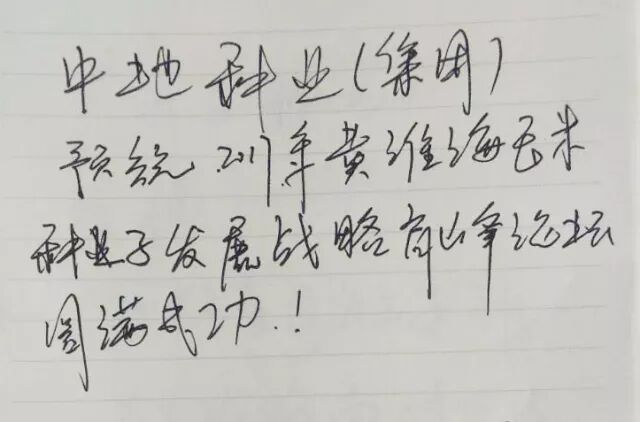 中地种业(集团)
预统.2017.年黄淮海玉米
种业子发展战略高峰论坛
圆满成功.!